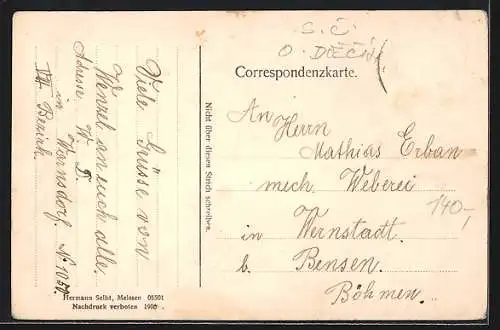 S. Č.
O. DĚČÍN
Correspondenzkarte.
An
Herrn
Mathias Erban
mech. Weberei
in Wernstadt.
b. Bensen.
Böhmen.
140,-
Nicht über diesen Strich schreiben.
Viele Grüsse von
Wenzel an euch alle.
Adresse W. D.
in Warnsdorf. No 1057.
VII. Bezirk.
Hermann Seibt, Meissen 01501
Nachdruck verboten 1900